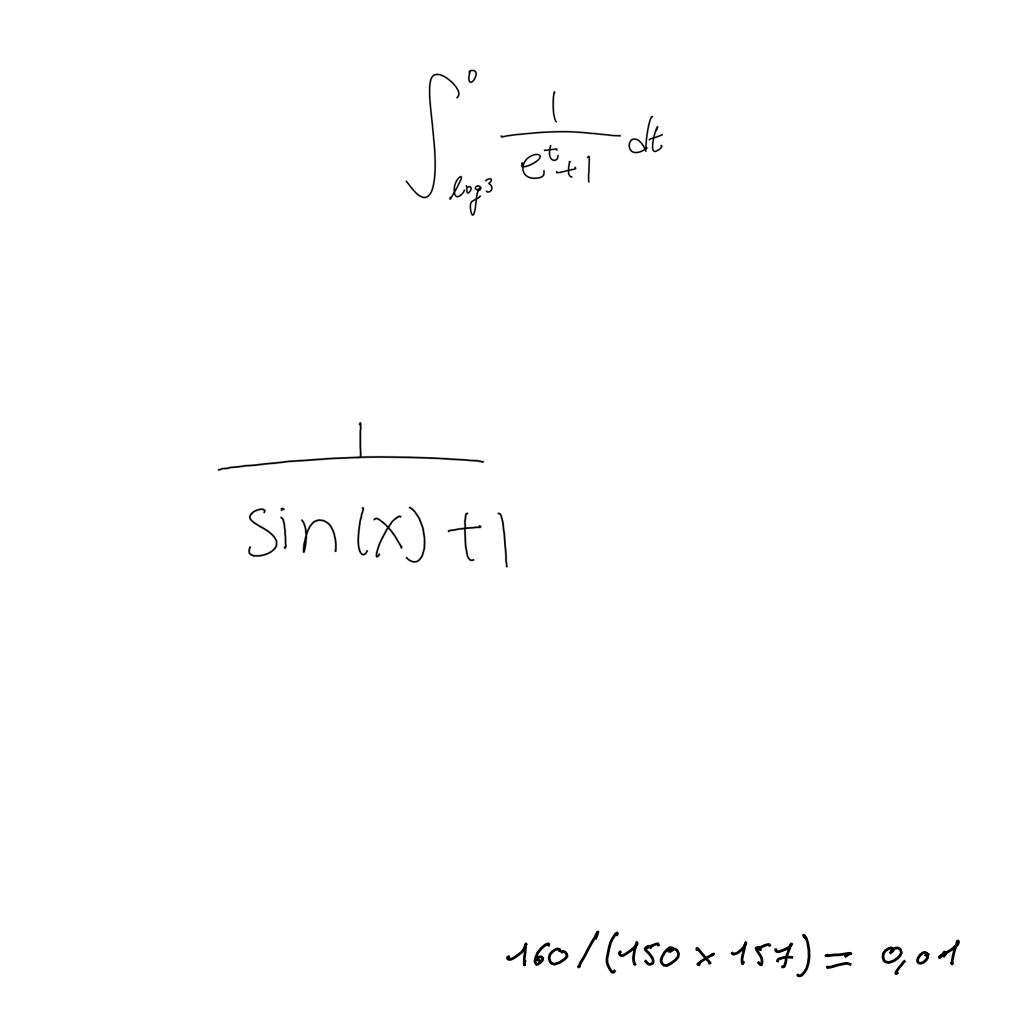 \int_{\log 3}^{0} \frac{1}{e^t+1} dt
\frac{1}{\sin(x)+1}
160/(150×157)= 0,01